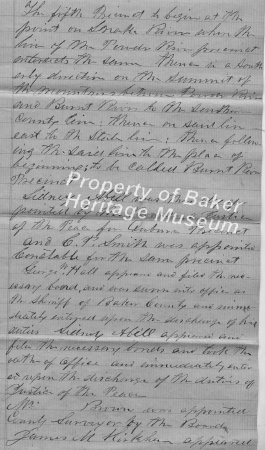 The fifth Precinct to begin at the
point on Snake River when the
line of the Powder River precinct
intersects the same thence in a south
erly direction on the summit of
the mountains between Powder River
and Burnt River to the Southern
County line; thence on said line
east to the State line; thence follow
ing the same line to the place of
beginning; to be called Burnt River
Precinct
Sidney Abell was
pointed
of the Peace for Auburn Precinct
and C. T. Smith was appointed
Constable for the same precinct
George Hall appeared and filed the nec
essary bond, and was sworn into office as
the Sheriff of Baker County and imme
diately entered upon the discharge of his
duties Sidney Abell appeared and
filed the necessary bonds and took the
oath of office and immediately enter
ed upon the discharge of the duties of
Justice of the Peace
Mr. Brown was appointed
County Surveyor by the Board
James M. Kirkham appeared
Property of Baker
Heritage Museum